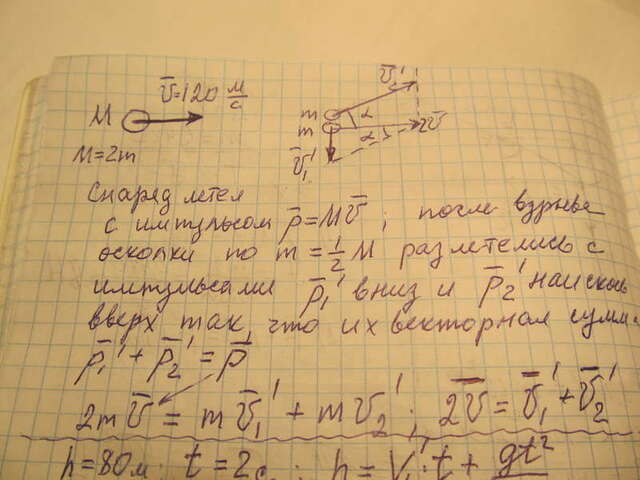 v̅=120 м/с
M
M=2m
v̅₂'
m α
m α 2v̅
v̅₁'
Снаряд летел
с импульсом p̅=Mv̅; после взрыва
осколки по m=½M разлетелись с
импульсами p̅₁' вниз и p̅₂' наискось
вверх так, что их векторная сумма
p̅₁'+p̅₂'=p̅
2mv̅=mv̅₁'+mv₂'; 2v̅=v̅₁'+v̅₂'
h=80м; t=2с; h=V₁'t+gt²